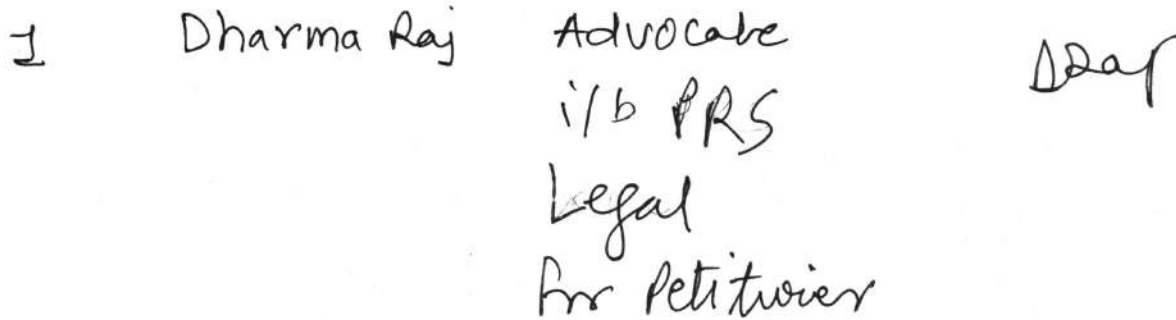 1 Dharma Raj Advocate
i/b PRS
Legal
for Petitioner